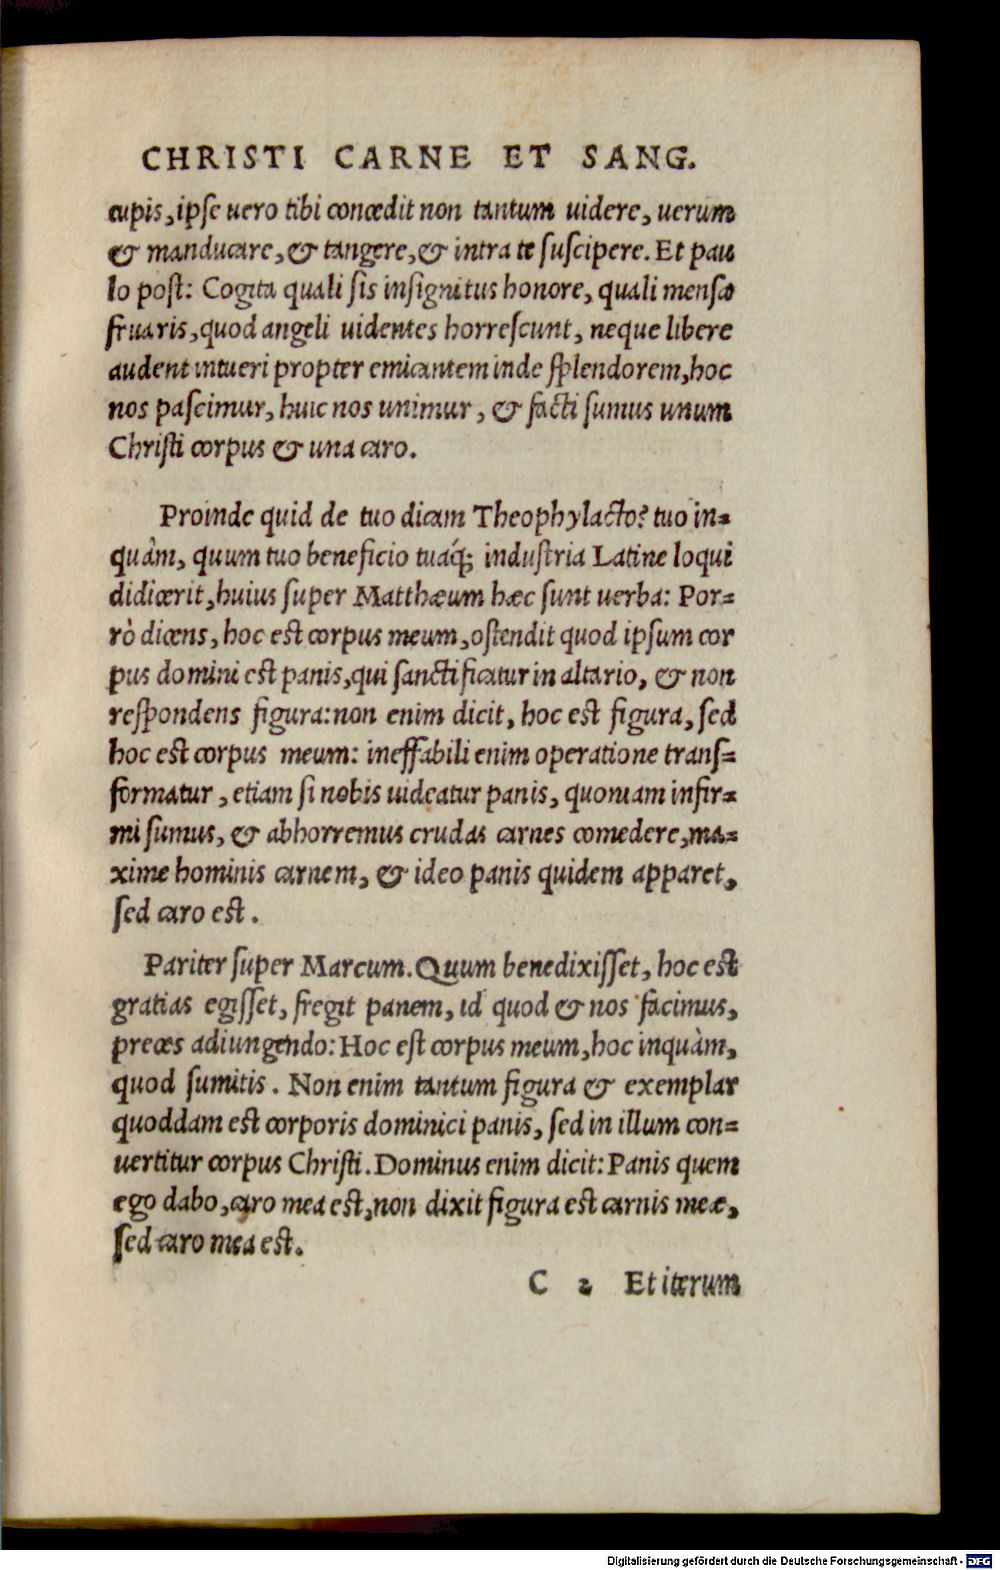 CHRISTI CARNE ET SANG.
cupis, ipse uero tibi concedit non tantum uidere, uerum
& manducare, & tangere, & intra te suscipere. Et pau
lo post: Cogita quali sis insignitus honore, quali mensa
fruaris, quod angeli uidentes horrescunt, neque libere
audent intueri propter emicantem inde splendorem, hoc
nos pascimur, huic nos unimur, & facti sumus unum
Christi corpus & una caro.
Proinde quid de tuo dicam Theophylacto? tuo in=
quàm, quum tuo beneficio tuáq; industria Latine loqui
didicerit, huius super Matthæum hæc sunt uerba: Por=
rò dicens, hoc est corpus meum, ostendit quod ipsum cor
pus domini est panis, qui sanctificatur in altario, & non
respondens figura: non enim dicit, hoc est figura, sed
hoc est corpus meum: ineffabili enim operatione trans=
formatur, etiam si nobis uideatur panis, quoniam infir=
mi sumus, & abhorremus crudas carnes comedere, ma=
xime hominis carnem, & ideo panis quidem apparet,
sed caro est.
Pariter super Marcum. Quum benedixisset, hoc est
gratias egisset, fregit panem, id quod & nos facimus,
preces adiungendo: Hoc est corpus meum, hoc inquàm,
quod sumitis. Non enim tantum figura & exemplar
quoddam est corporis dominici panis, sed in illum con=
uertitur corpus Christi. Dominus enim dicit: Panis quem
ego dabo, caro mea est, non dixit figura est carnis meæ,
sed caro mea est.
C 2 Et iterum
Digitalisierung gefördert durch die Deutsche Forschungsgemeinschaft - DFG